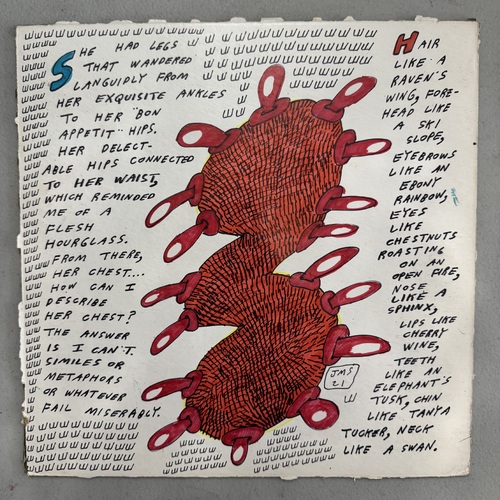 SHE HAD LEGS
THAT WANDERED
LANGUIDLY FROM
HER EXQUISITE ANKLES
TO HER "BON
APPETIT" HIPS.
HER DELECT-
ABLE HIPS CONNECTED
TO HER WAIST,
WHICH REMINDED
ME OF A
FLESH
HOURGLASS.
FROM THERE,
HER CHEST...
HOW CAN I
DESCRIBE
HER CHEST?
THE ANSWER
IS I CAN'T.
SIMILES OR
METAPHORS
OR WHATEVER
FAIL MISERABLY.
HAIR
LIKE A
RAVEN'S
WING, FORE-
HEAD LIKE
A SKI
SLOPE,
EYEBROWS
LIKE AN
EBONY
RAINBOW,
EYES
LIKE
CHESTNUTS
ROASTING
ON AN
OPEN FIRE,
NOSE
LIKE A
SPHINX,
LIPS LIKE
CHERRY
WINE,
TEETH
LIKE AN
ELEPHANT'S
TUSK, CHIN
LIKE TANYA
TUCKER, NECK
LIKE A SWAN.
JMS
21